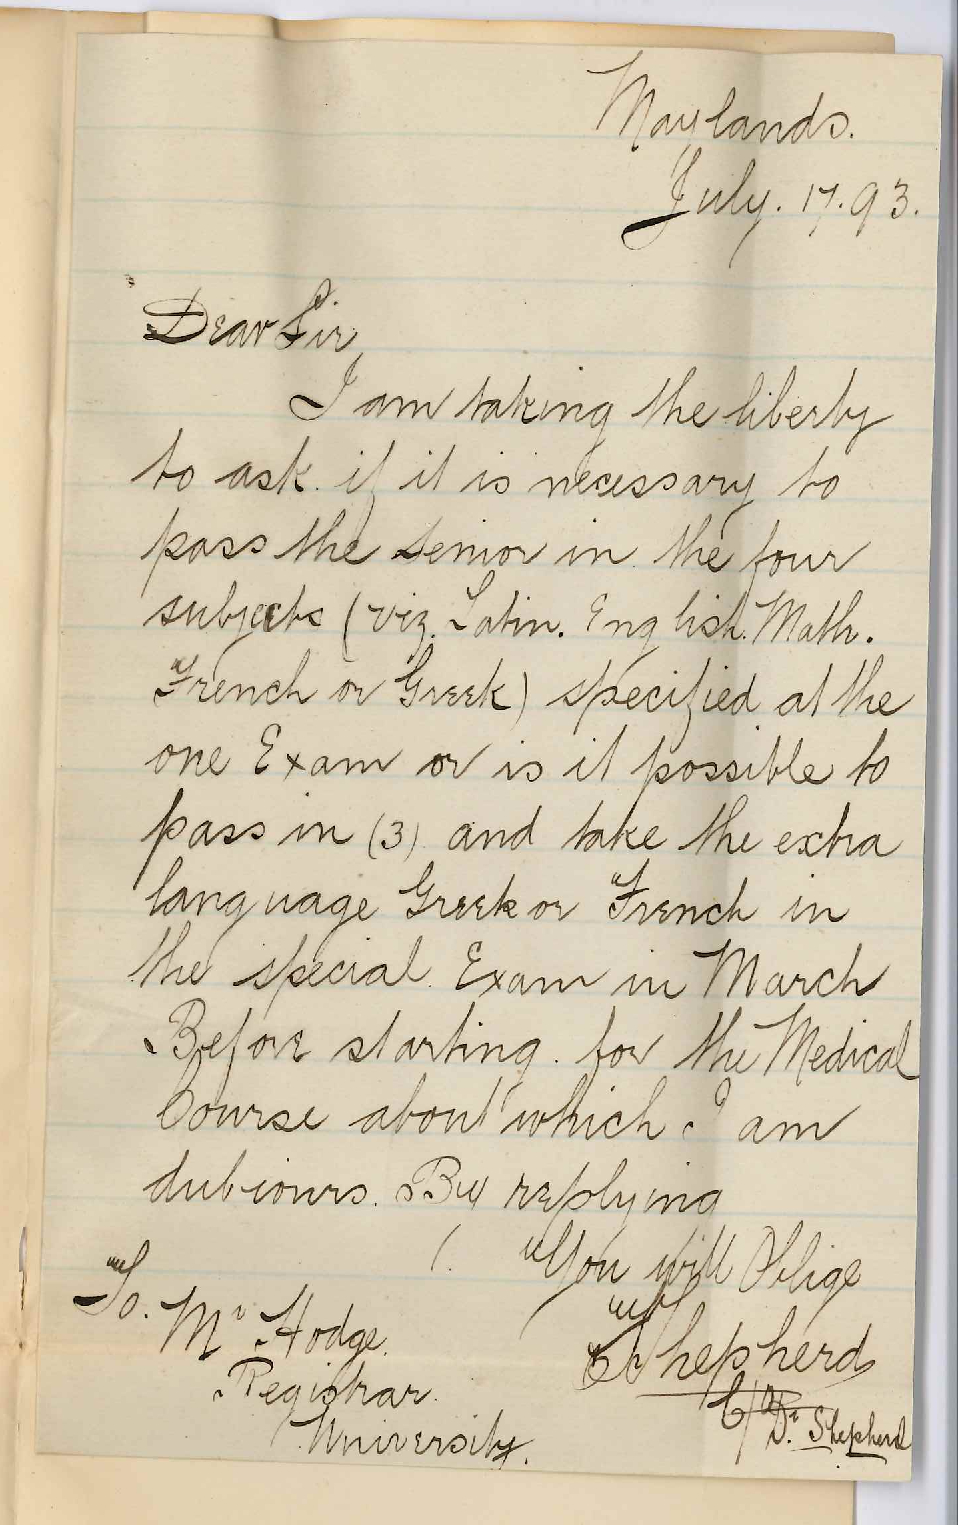 Maylands.
July. 17. 93.
Dear Sir,
I am taking the liberty
to ask. if it is necessary to
pass the Senior in the four
subjects (viz. Latin. English. Math.
French or Greek) specified at the
one Exam or is it possible to
pass in (3) and take the extra
language Greek or French in
the special Exam in March
Before starting for the Medical
Course about which I am
dubiours. By replying
You will Oblige
Shepherd
C/o Dr. Shepherd
To. Mr Hodge.
Registrar.
University.